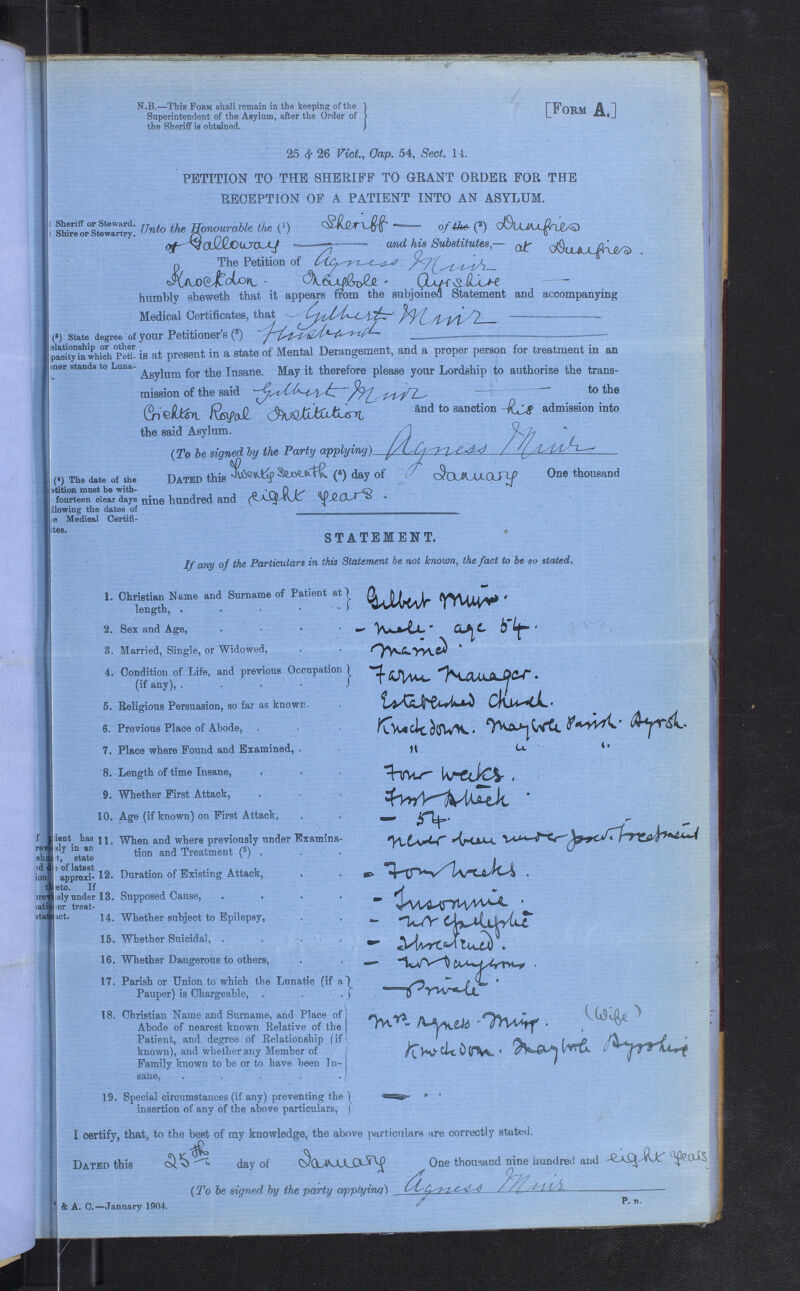 N.B.—This Form shall remain in the keeping of the
Superintendent of the Asylum, after the Order of
the Sheriff is obtained.
[Form A.]
25 & 26 Vict., Cap. 54, Sect. 14.
PETITION TO THE SHERIFF TO GRANT ORDER FOR THE
RECEPTION OF A PATIENT INTO AN ASYLUM.
Sheriff or Steward.
Shire or Stewartry.
Unto the Honourable the (1) Sheriff — of the (2) Dumfries
& Galloway — and his Substitutes,— at Dumfries.
The Petition of Agness Muir
Knockdon. Maybole. Ayrshire —
humbly sheweth that it appears from the subjoined Statement and accompanying
Medical Certificates, that Gilbert Muir —
(3) State degree of
elationship or other
pacity in which Peti-
ner stands to Luna-
your Petitioner's (3) Husband —
is at present in a state of Mental Derangement, and a proper person for treatment in an
Asylum for the Insane. May it therefore please your Lordship to authorize the trans-
mission of the said Gilbert Muir — to the
Crichton Royal Institution and to sanction his admission into
the said Asylum.
(To be signed by the Party applying) Agness Muir
(4) The date of the
etition must be with-
fourteen clear days
llowing the dates of
e Medical Certifi-
tes.
Dated this Twenty Seventh (4) day of January One thousand
nine hundred and eight years.
STATEMENT.
If any of the Particulars in this Statement be not known, the fact to be so stated.
1. Christian Name and Surname of Patient at
length, . Gilbert Muir.
2. Sex and Age, — Male. age 54.
3. Married, Single, or Widowed, Married
4. Condition of Life, and previous Occupation
(if any), . Farm Manager.
5. Religious Persuasion, so far as known. Established Church.
6. Previous Place of Abode, . Knockdown. Maybole Parish. Ayrsh.
7. Place where Found and Examined, . " " "
8. Length of time Insane, Four weeks.
9. Whether First Attack, First Attack
10. Age (if known) on First Attack, — 54.
f ient has
rev sly in an
sh t, state
nd d e of latest
ion approxi-
th eto. If
prev sly under
ati or treat-
stat act.
11. When and where previously under Examina-
tion and Treatment (5) . never been under prev. treatment
12. Duration of Existing Attack, — Four weeks.
13. Supposed Cause, — Insomnia.
14. Whether subject to Epilepsy, — not Epileptic
15. Whether Suicidal, . — Threatened.
16. Whether Dangerous to others, — not Dangerous.
17. Parish or Union to which the Lunatic (if a
Pauper) is Chargeable, . — Private
18. Christian Name and Surname, and Place of
Abode of nearest known Relative of the
Patient, and degree of Relationship (if
known), and whether any Member of
Family known to be or to have been In-
sane,
Mrs. Agness Muir. (Wife)
Knockdon. Maybole Ayrshire
19. Special circumstances (if any) preventing the
insertion of any of the above particulars, —
I certify, that, to the best of my knowledge, the above particulars are correctly stated.
Dated this 25th day of January One thousand nine hundred and eight years
(To be signed by the party applying) Agness Muir
& A. C.—January 1904.
P. n.